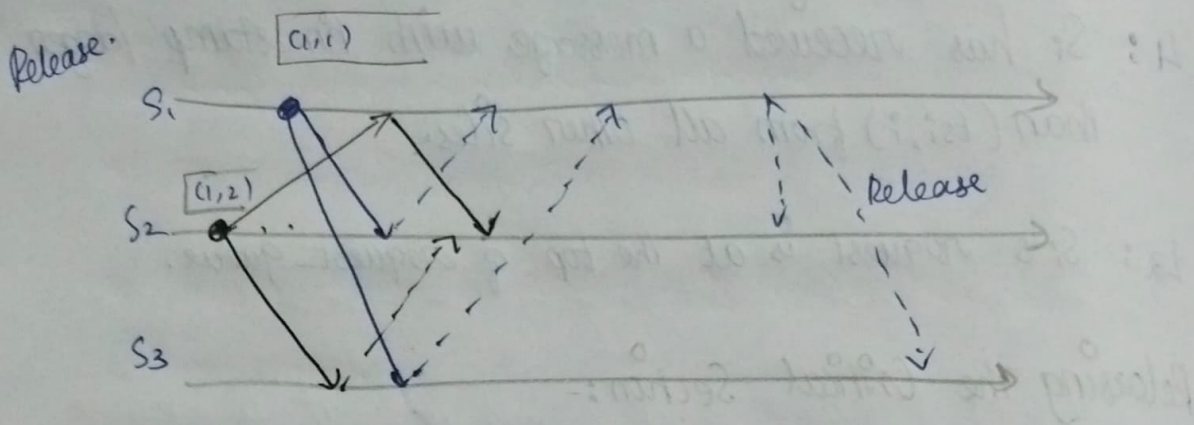 Release.
(1,1)
S1
(1,2)
Release
S2
S3